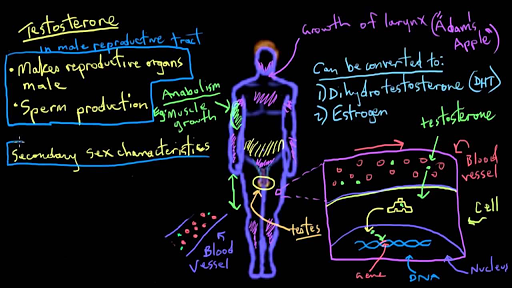 Testosterone
in male reproductive tract
• Makes reproductive organs
male
• Sperm production
Secondary sex characteristics
Anabolism
eg Muscle
growth
Growth of larynx ("Adam's
Apple")
Can be converted to:
1) Dihydrotestosterone (DHT)
2) Estrogen
testosterone
Blood
vessel
Cell
Nucleus
DNA
Gene
testes
Blood
Vessel